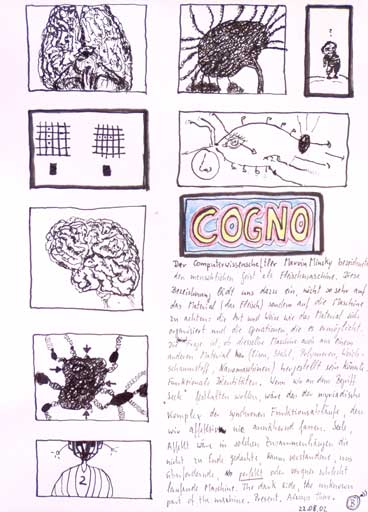 ?
COGNO
Der Computerwissenschaftler Marvin Minsky bezeichnete
den menschlichen Geist als Fleischmaschine. Diese
Bezeichnung lädt uns dazu ein, nicht so sehr auf
das Material (das Fleisch) sondern auf die Maschine
zu achten: die Art und Weise wie das Material
organisiert und die Operationen, die es ermöglicht.
ist, ob dieselbe Maschine auch aus einem
anderen Material (Eisen, Stahl, Polymeren,
Nanomaschinen) hergestellt sein könnte.
Funktionale Identitäten. Wenn wir an dem Begriff
festhalten wollen, wäre das der myriadische
Komplex der synchronen Funktionsabläufe, den
wir nie annähernd fassen. Seele,
Affekt wäre in solchen Zusammenhängen die
nicht zu Ende gedachte, kaum verstandene, uns
perfekt oder vorgeblich schlecht
laufende Maschine. The dark side, the unknown
part of the machine. Present,
2
22.08.02
B